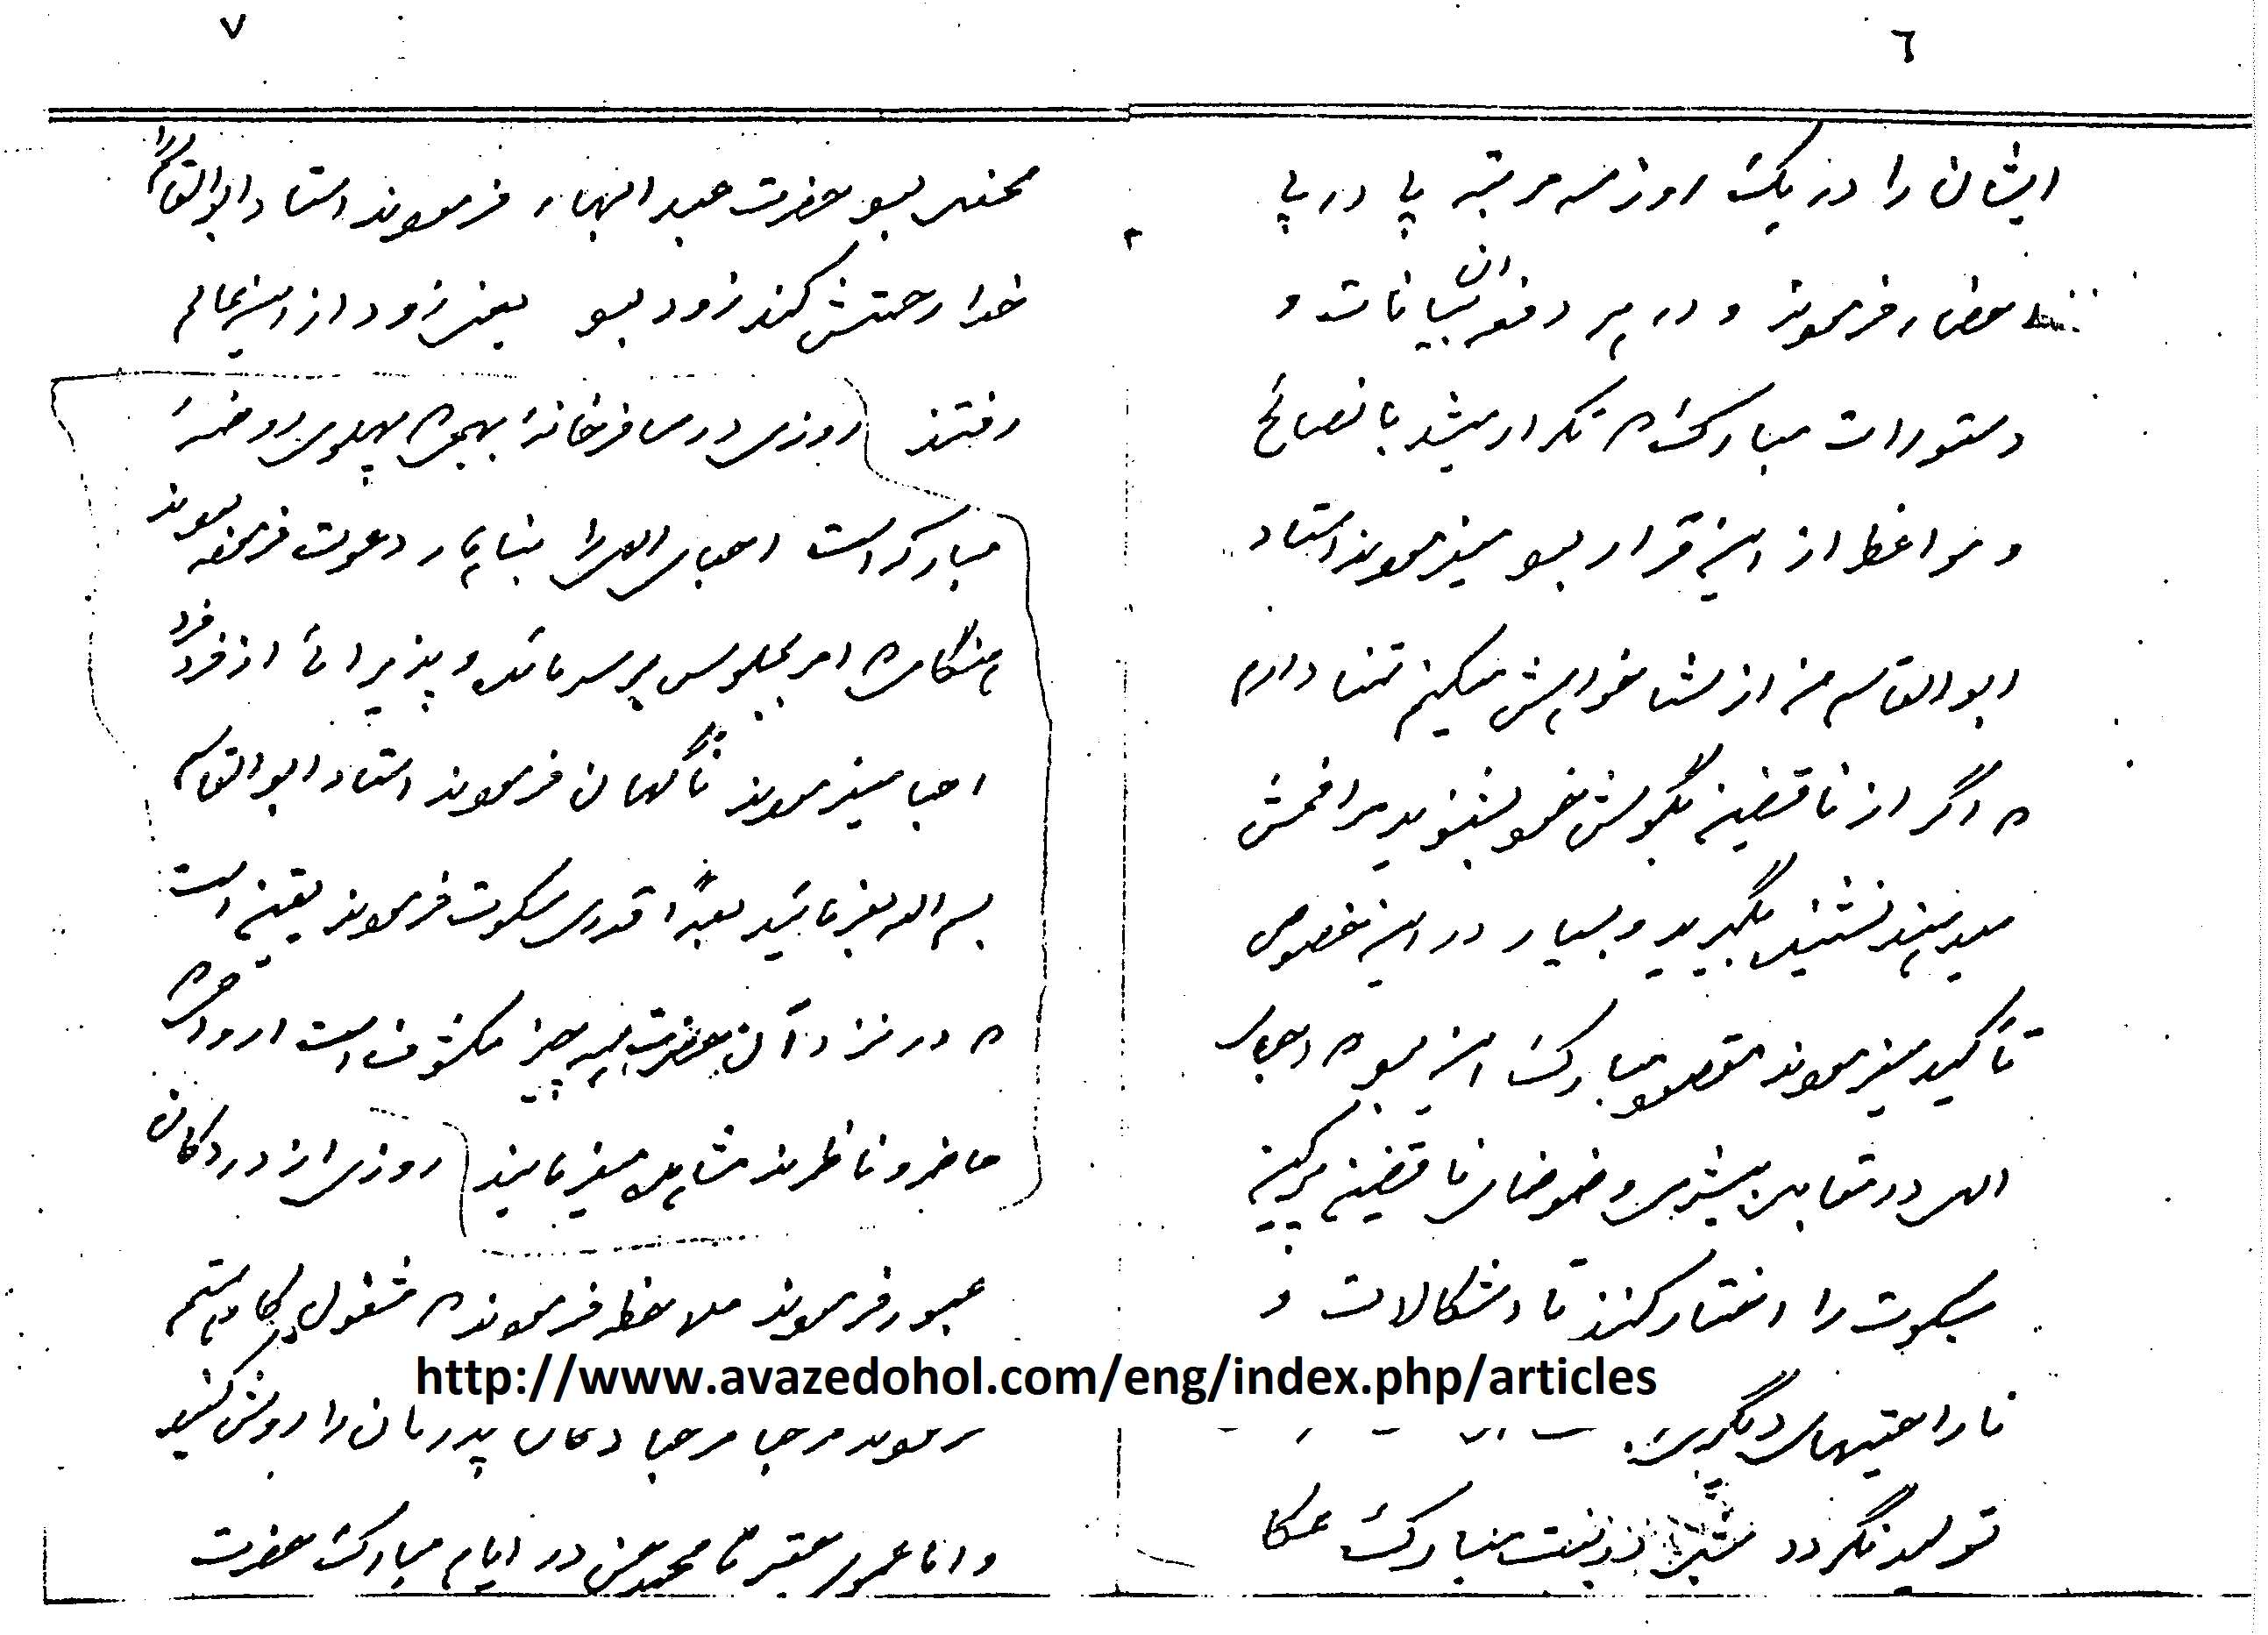 ٦
ایشان را در یک روز سه مرتبه پا در پا
احضار فرمودند و در هر دفعه ان بیانات و
دستورات مبارکشان تکرار میشد با نصائح
و مواعظ از این قرار بود میفرمودند استاد
ابوالقاسم من از شما خواهش میکنم تمنا دارم
که اگر از ناقضین بگوش خود بشنوید مرا فحش
میدهند نشنیده بگیرید و بسیار در این خصوص
تأکید میفرمودند مقصود مبارک این بود که احبای
الهی در مقابل و ضوضای ناقضین پرکین
سکوت را اختیار کنند تا اشکالات و
ناراحتیهای دیگری
تولید نگردد مبارک عکا
٧
بود حضرت عبدالبهاء فرمودند استاد ابوالقاسم را
خدا رحمتش کند زود بود یعنی زود از این عالم
رفتند روزی در مسافرخانهٔ بهجی که پهلوی روضهٔ
مبارکه است احبای الهی را بناهار دعوت فرموده بودند
هنگامی که امر بجلوس بر سر مائده و پذیرائی از فرد فرد
احبا میفرمودند ناگهان فرمودند استاد ابوالقاسم
بسم الله بفرمائید بعداً قدری سکوت فرمودند یقین است
که در نزد آن حضرت همه چیز مکشوف است ارواحی که
حاضر و ناظرند مشاهده میفرمایند روزی از در دکان
عبور فرمودند ملاحظه فرمودند که مشغول کار هستم
فرمودند مرحبا مرحبا دکان پدرتان را روشن کنید
و اما عموی حقیر آقا محمد حسن در ایام مبارک حضرت
http://www.avazedohol.com/eng/index.php/articles